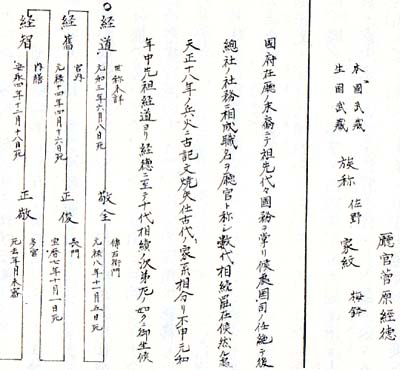 廳官菅原経徳
本國武蔵
生國武蔵
族称 佐野 家紋 梅鉢
國府在廳ノ末裔ニテ祖先代々國務ヲ掌リ候處國司ノ任絶テ後
總社ノ社務ニ相成職名ヲ廳官ト称シ数代相續罷在候然ル處
天正十八年ノ兵火ニ古記文焼失仕古代ノ家系相分リ不申元和
年中先祖経道ヨリ経徳ニ至テ十代相續ノ次第左ノ如クニ御坐候
経道
世称未詳
元和三年六月八日死
敬全
傳右衛門
元禄八年十一月五日死
経舊
宮内
元禄十四年四月十六日死
正俊
長門
宝暦七年十月一日死
経智
内膳
安永四年十二月十八日死
正敬
多宮
死去年月未審